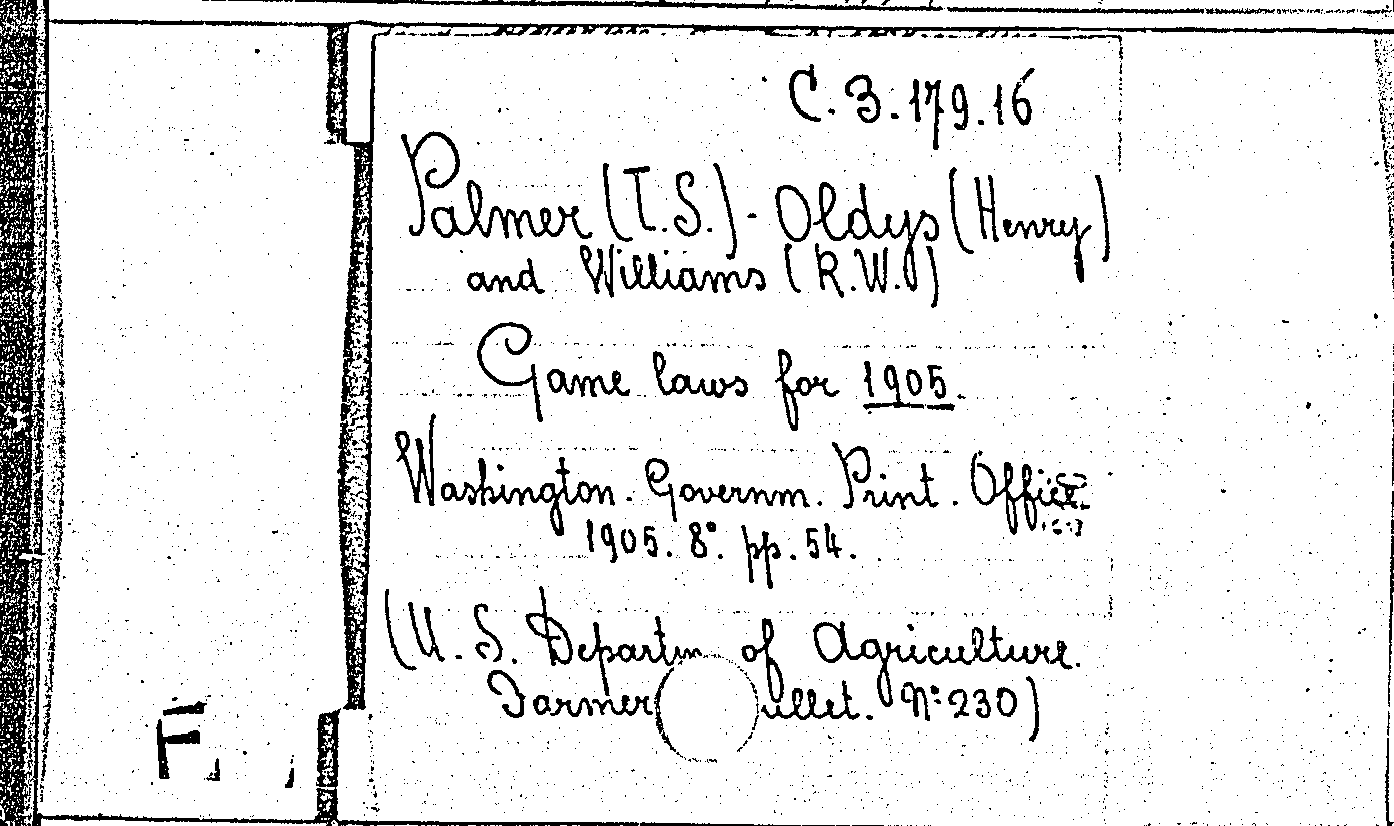 C. 3. 179. 16
Palmer (T. S.) - Oldys (Henry)
and Williams (R. W.)
Game laws for 1905.
Washington. Governm. Print. Office
1905. 8°. pp. 54.
(U. S. Departm of Agriculture.
Farmer ullet. N: 230)